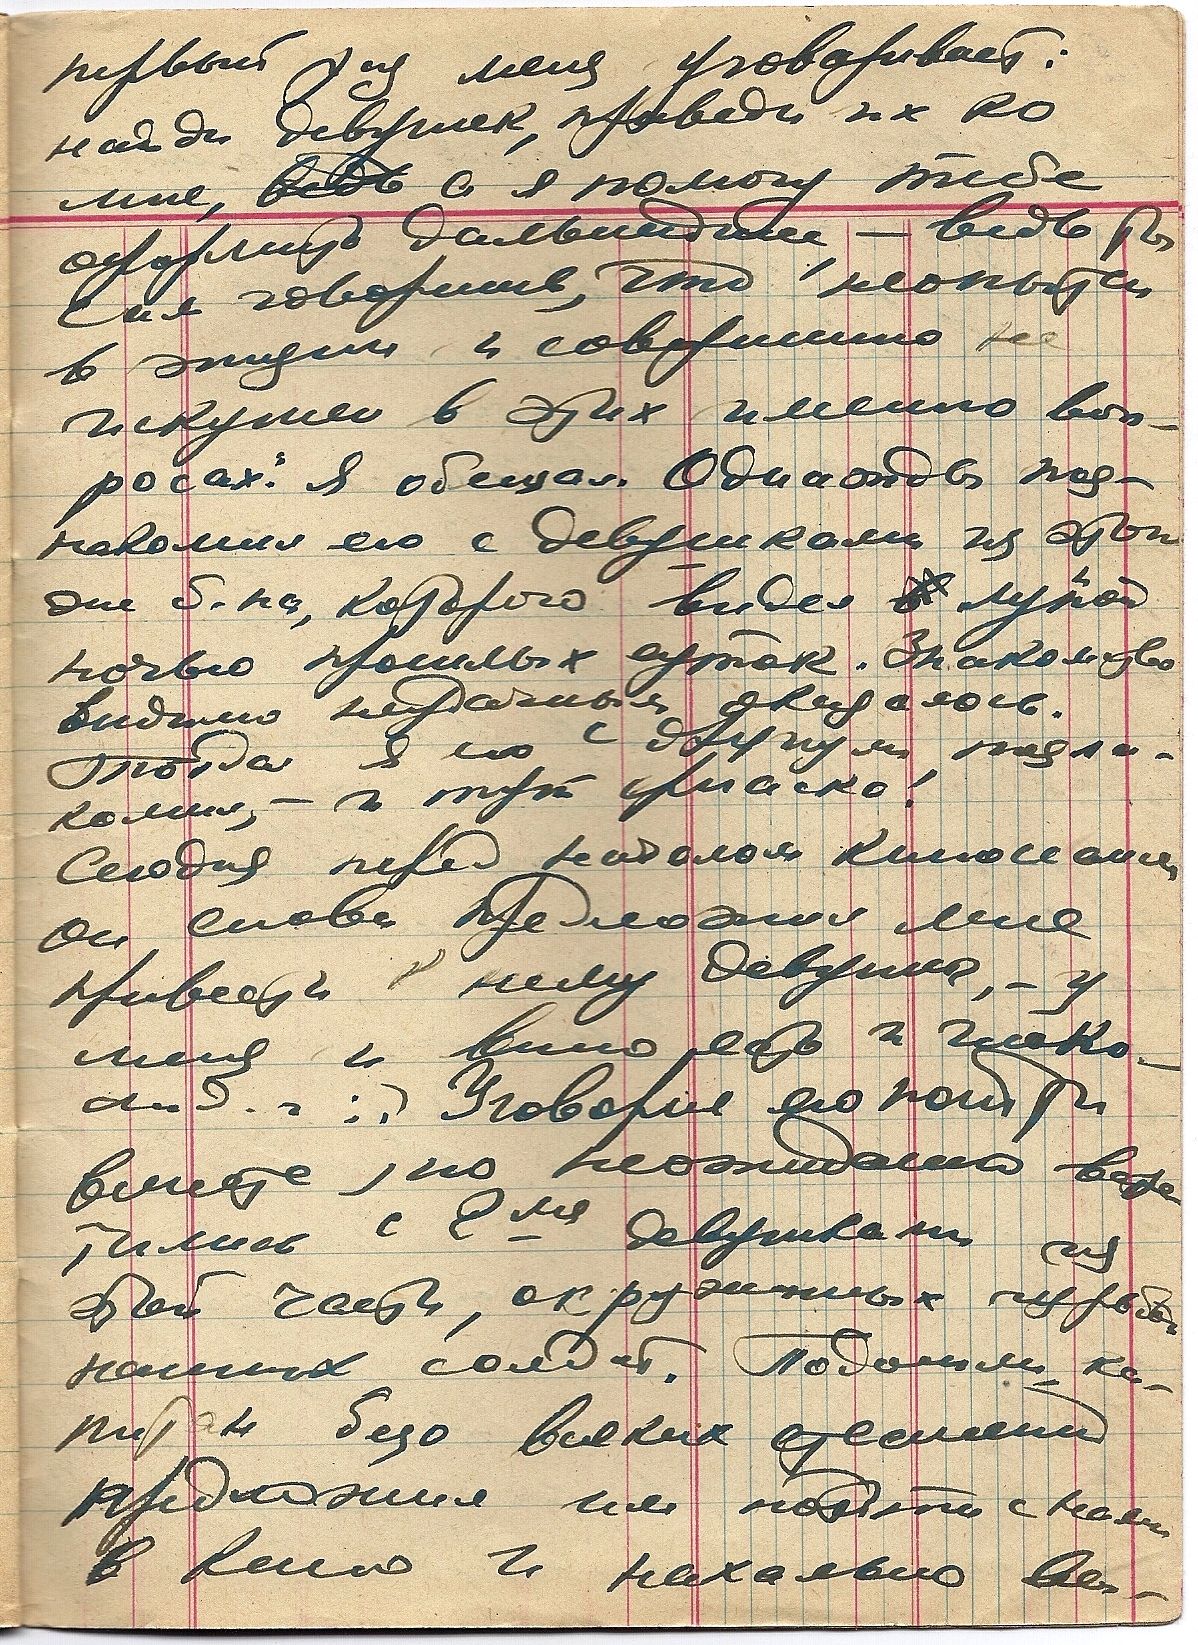 первый раз меня уговаривает:
найди девушек, приведи их ко
мне, а я помогу тебе
оформить дальнейшее, – ведь ты
сам говоришь, что неопытен
в жизни и совершенно не
искушен в этих именно воп-
росах". Я обещал. Однажды поз-
накомил его с девушками из этого
же б-на, которого видел
ночью прошлых суток. Знакомство
видимо неудачным оказалось.
Тогда я его с другими позна-
комил, – и тут фиаско!
Сегодня перед началом киносеанса
он снова предложил мне
привести к нему девушек, – у
меня и вино есть и шоко-
лад.. Уговорил его пойти
вместе, но неожиданно встре
тились с 2мя девушками из
этой части, окруженных гурьбой
наших солдат. Подошли, ка-
питан безо всяких стеснений
предложил им пойти с нами
в кино и нахально вы-